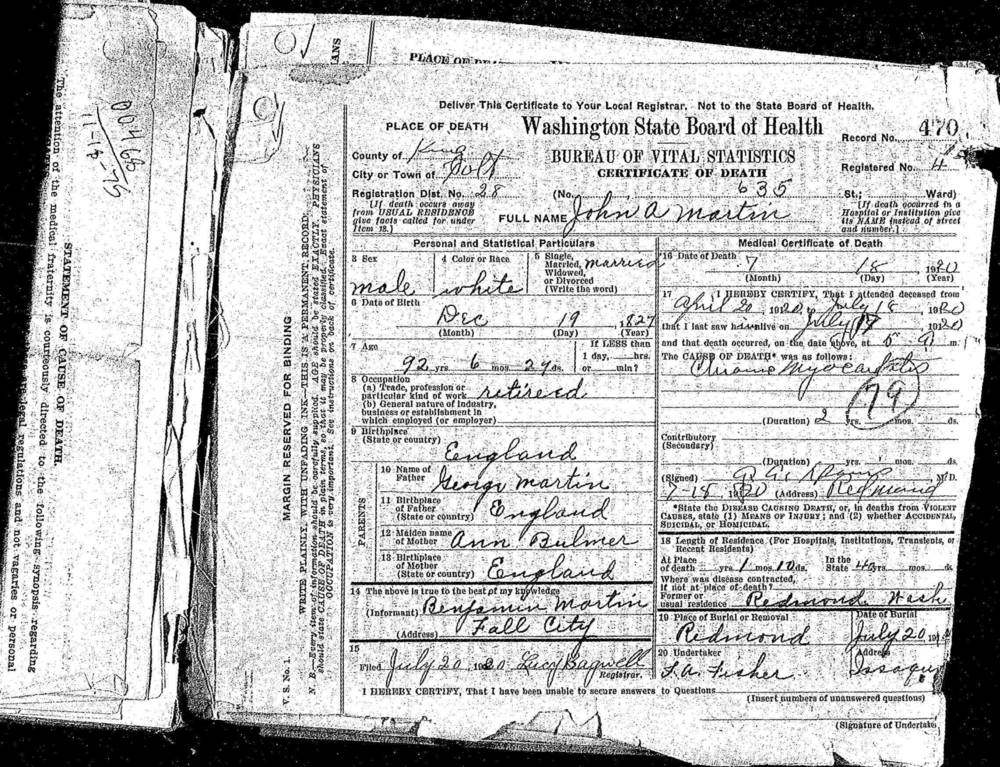 PLACE OF DEA
ANS
00468
11-13-75
The attention of the medical fraternity is courteously directed to the following synopsis regarding
STATEMENT OF CAUSE OF DEATH.
legal regulations and not vagaries or personal
V. S. No. 1.
MARGIN RESERVED FOR BINDING
WRITE PLAINLY, WITH UNFADING INK—THIS IS A PERMANENT RECORD.
N. B.—Every item of information should be carefully supplied. AGE should be stated EXACTLY. PHYSICIANS
should state CAUSE OF DEATH in plain terms, so that it may be properly classified. Exact statement of
OCCUPATION is very important. See instructions on back of certificate.
Deliver This Certificate to Your Local Registrar, Not to the State Board of Health.
PLACE OF DEATH
Washington State Board of Health
Record No. 470
County of King
BUREAU OF VITAL STATISTICS
Registered No. 4
City or Town of Tolt
CERTIFICATE OF DEATH
Registration Dist. No. 28 (No. 635 St.; Ward)
(If death occurs away from USUAL RESIDENCE give facts called for under Item 18.)
FULL NAME John A Martin
(If death occurred in a Hospital or Institution give its NAME instead of street and number.)
Personal and Statistical Particulars
3 Sex male
4 Color or Race white
5 Single, Married, Widowed, or Divorced (Write the word) married
6 Date of Birth
Dec 19 1827
(Month) (Day) (Year)
7 Age
92 yrs. 6 mos. 29 ds.
If LESS than 1 day, hrs. or min?
8 Occupation
(a) Trade, profession or particular kind of work retired
(b) General nature of industry, business or establishment in which employed (or employer)
9 Birthplace
(State or country) England
PARENTS
10 Name of Father George Martin
11 Birthplace of Father (State or country) England
12 Maiden name of Mother Ann Bulmer
13 Birthplace of Mother (State or country) England
14 The above is true to the best of my knowledge
(Informant) Benjamin Martin
(Address) Fall City
15
Filed July 20, 1920 Lucy Bagwell
Registrar.
Medical Certificate of Death
16 Date of Death 7 18 1920
(Month) (Day) (Year)
17 I HEREBY CERTIFY, That I attended deceased from
April 20 1920, to July 18 1920
that I last saw him alive on July 18 1920
and that death occurred, on the date above, at 5 m.
The CAUSE OF DEATH* was as follows:
Chronic Myocarditis
79
(Duration) 2 yrs. mos. ds.
Contributory
(Secondary)
(Duration) yrs. mos. ds.
(Signed) M.D.
7-18 1920 (Address) Redmond
*State the DISEASE CAUSING DEATH, or, in deaths from VIOLENT CAUSES, state (1) MEANS OF INJURY; and (2) whether ACCIDENTAL, SUICIDAL, or HOMICIDAL.
18 Length of Residence (For Hospitals, Institutions, Transients, or Recent Residents)
At Place of death yrs. 1 mos. 10 ds. In the State 40 yrs. mos. ds.
Where was disease contracted, if not at place of death?
Former or usual residence Redmond Wash
19 Place of Burial or Removal Redmond
Date of Burial July 20 19
20 Undertaker F. A. Fisher
Address Issaquah
I HEREBY CERTIFY, That I have been unable to secure answers to Questions
(Insert numbers of unanswered questions)
(Signature of Undertaker